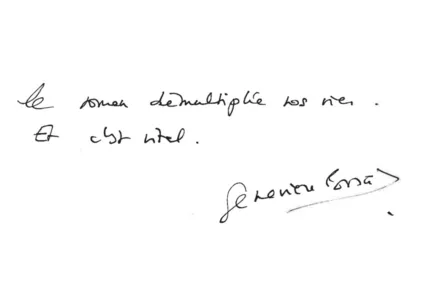 Le roman démultiplie nos vies.
Et c'est vital.
Geneviève